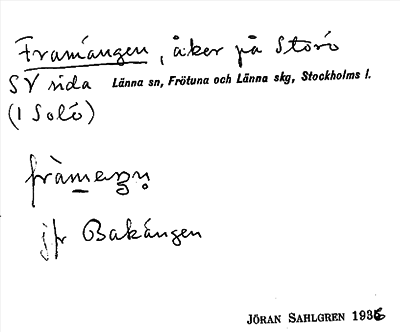 Framängen, åker på Storö
SV sida Länna sn, Frötuna och Länna skg, Stockholms l.
(1 Solö)
jfr Bakängen
JÖRAN SAHLGREN 1936